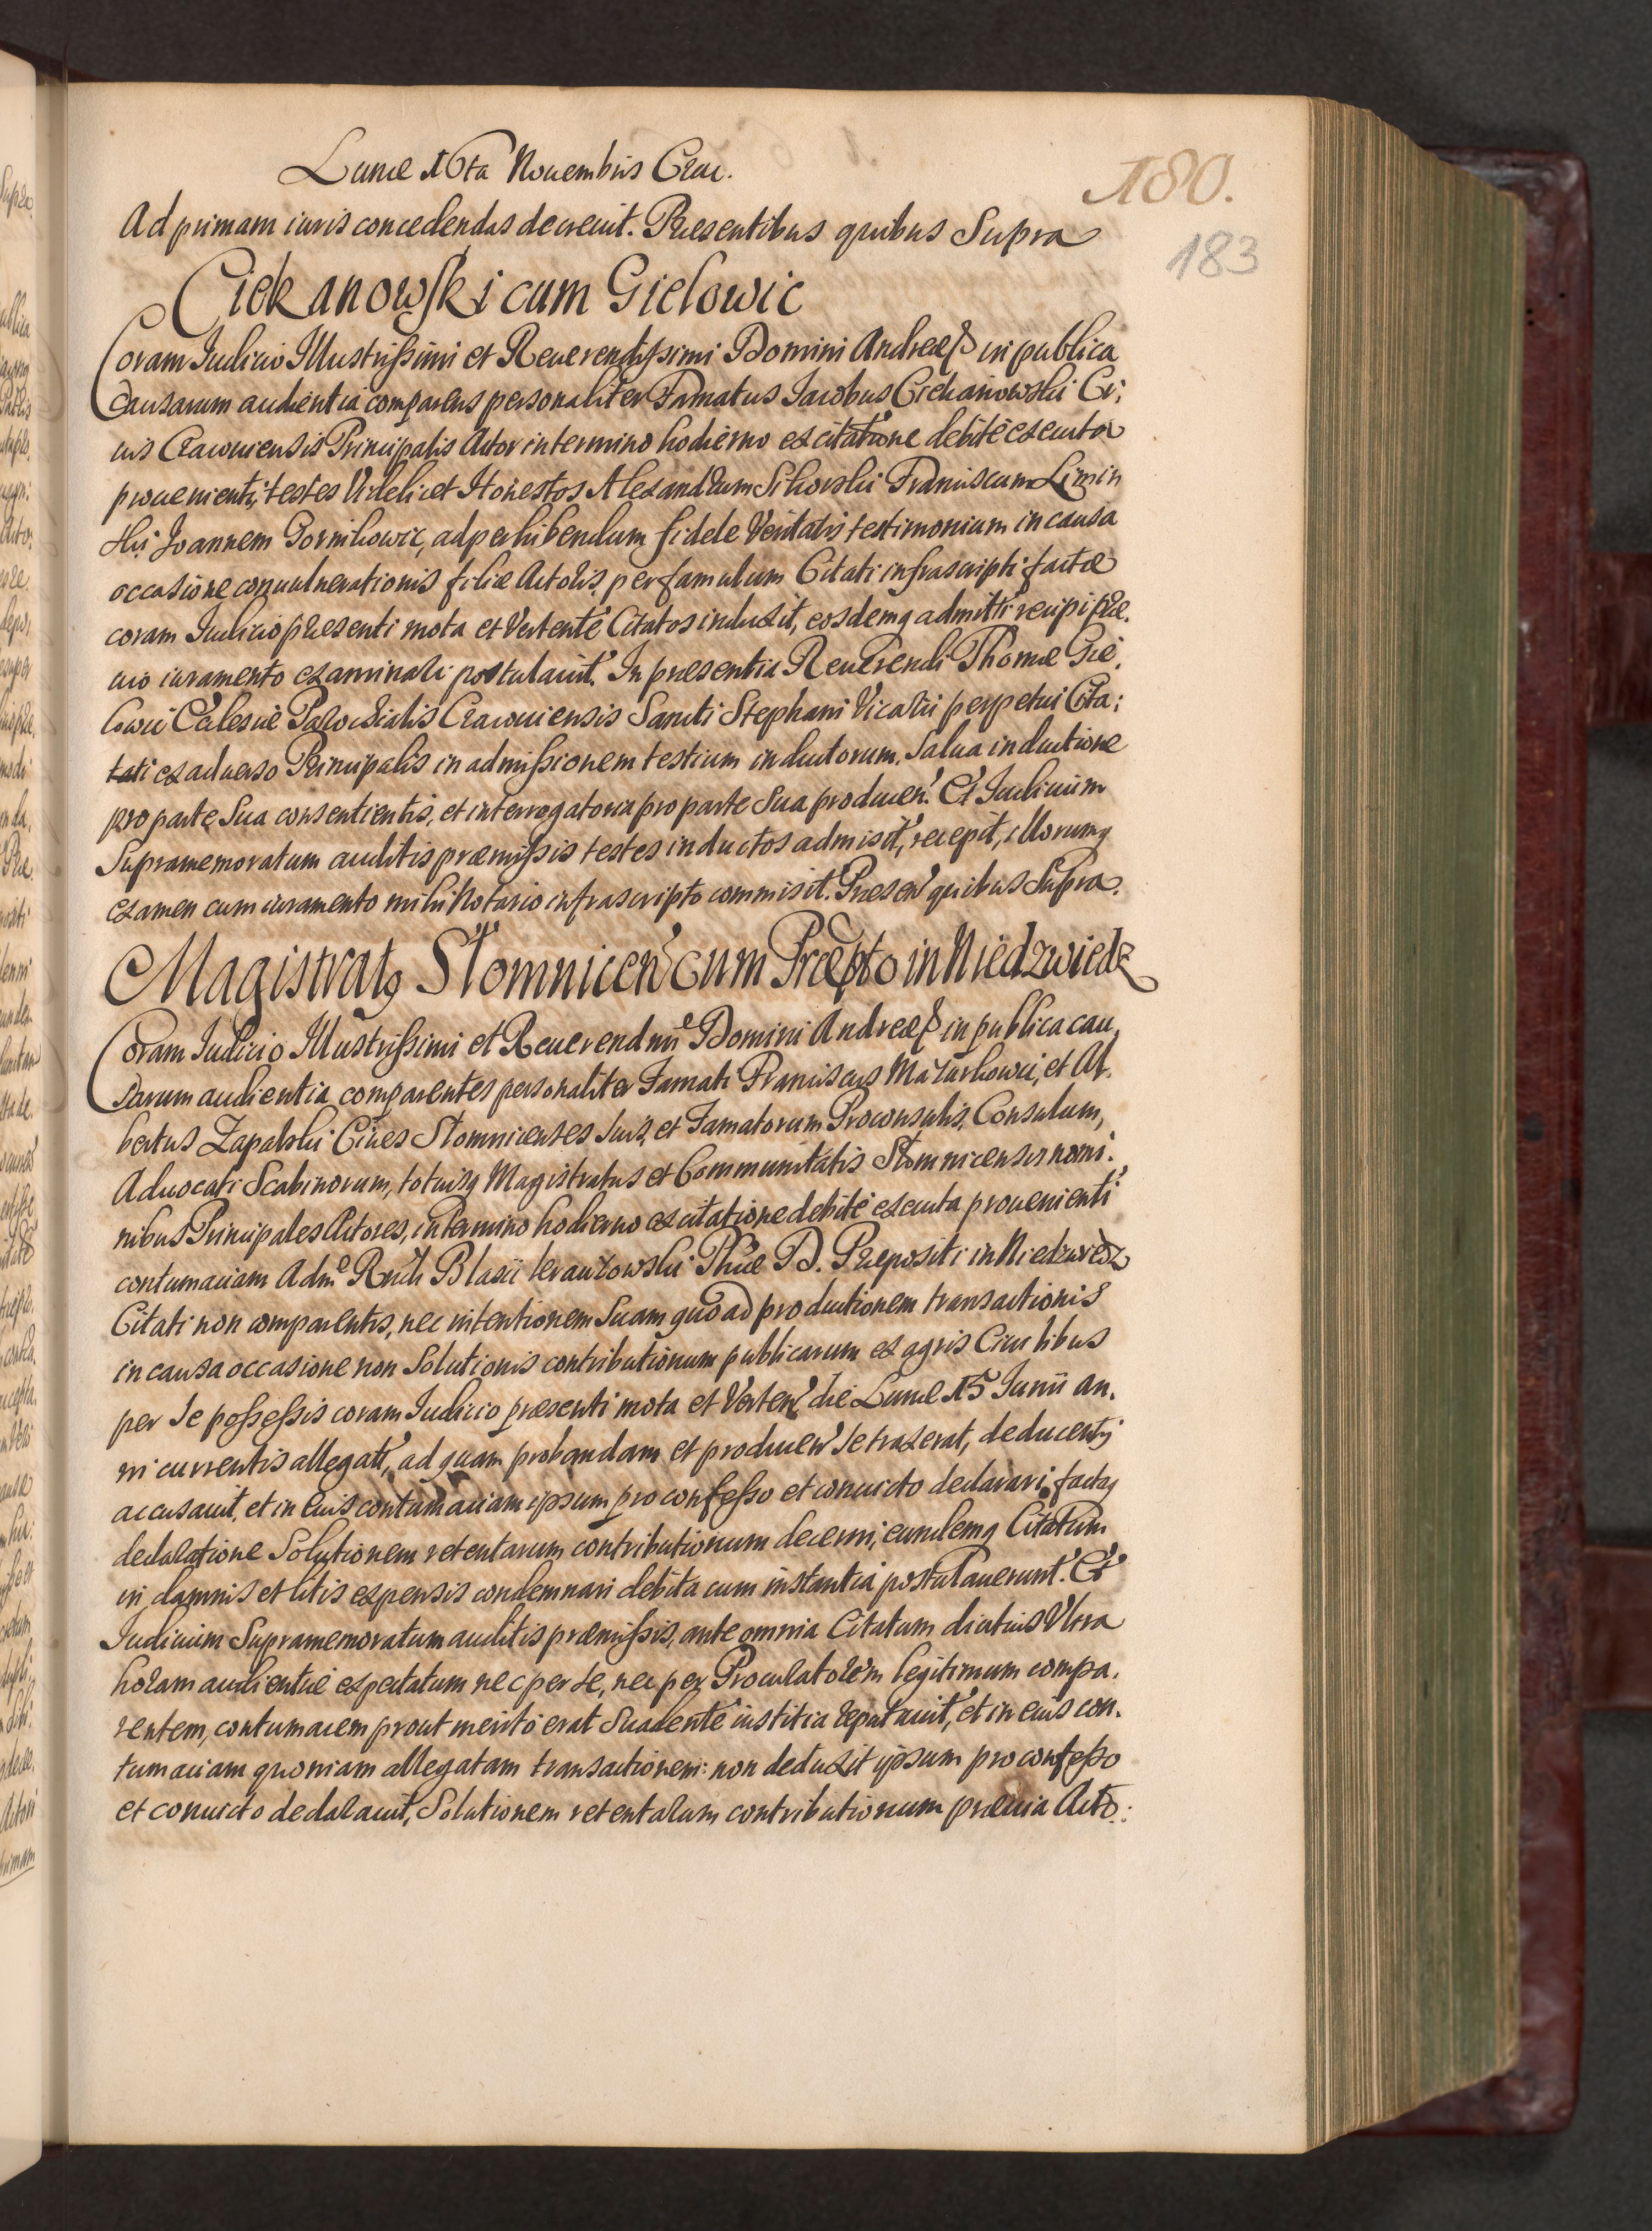 Lunæ 16ta Nouembris Crac.
180.
183
Ad primam iuris concedendas decreuit. Præsentibus quibus Supra
Ciekanowski cum Gielowic
Coram Iudicio Illustrissimi et Reuerendissimi Domini Andreæ in publica
Causarum audientia comparens personaliter Famatus Iacobus Ciekanowski Ci;
uis Cracouiensis Principalis Actor in termino hodierno ex citatione debite executa
proueniente, testes Videlicet Honestos Alexandrum Sikorski Franciscum Limin
ski Joannem Gornikowic, ad perhibendum fidele Veritatis testimonium in causa
occasione conuulnerationis filiæ Actoris per famulum Citati infrascripti factæ
coram Iudicio præsenti mota et Vertente Citatos induxit, eosdemq admitti recipi præ.
uio iuramento examinari postulauit. In præsentia Reuerendi Thomæ Gie.
lowic Ecclesiæ Parochialis Cracouiensis Sancti Stephani Vicarii perpetui Cita;
tati ex aduerso Principalis in admissionem testium inductorum, Salua inductione
pro parte Sua consentientis, et interrogatoria pro parte Sua producen. Et Iudicium
Supramemoratum auditis præmissis testes inductos admisit, recepit, illorumq
examen cum iuramento mihi Notario infrascripto commisit. Præsen quibus Supra.
Magistratq Słomnicen cum Præpto in Niedzwiedz
Coram Iudicio Illustrissimi et Reuerendmi Domini Andreæ in publica cau,
sarum audientia comparentes personaliter Famati Franciscus Mazurkowic, et Al.
bertus Zapalski Ciues Słomnicenses Suis, et Famatorum Proconsulis, Consulum,
Aduocati Scabinorum, totiusq Magistratus et Communitatis Słomnicensis nomi.
nibus Principales Actores, in termino hodierno ex citatione debite executa prouenienti
contumaciam Adm Rndi Blasii Phiæ D. Præpositi in Niedzwiedz
Citati non comparentis, nec intentionem Suam quo ad productionem transactionis
in causa occasione non Solutionis contributionum publicarum ex agris Ciuilibus
per Se possessis coram Iudicio præsenti mota et Verten die Lunæ 15 Iunii an.
ni currentis allegat, ad quam probandam et producen Se traxerat, deducentis
accusauit, et in Eius contumaciam ipsum pro confesso et conuicto declarari, factaq
declaratione Solutionem retentarum contributionum decerni, eundemq Citatum
in damnis et litis expensis condemnari debita cum instantia postulauerunt. Et
Iudicium Supramemoratum auditis præmissis, ante omnia Citatum diutius Vltra
horam audientiæ expectatum nec per Se, nec per Procuratorem legitimum compa.
rentem, contumacem prout merito erat Suadente iustitia reputauit, et in eius con.
tumaciam quoniam allegatam transactionem non deduxit ipsum pro confesso
et conuicto declarauit, Solutionem retentarum contributionum præuia Acto: